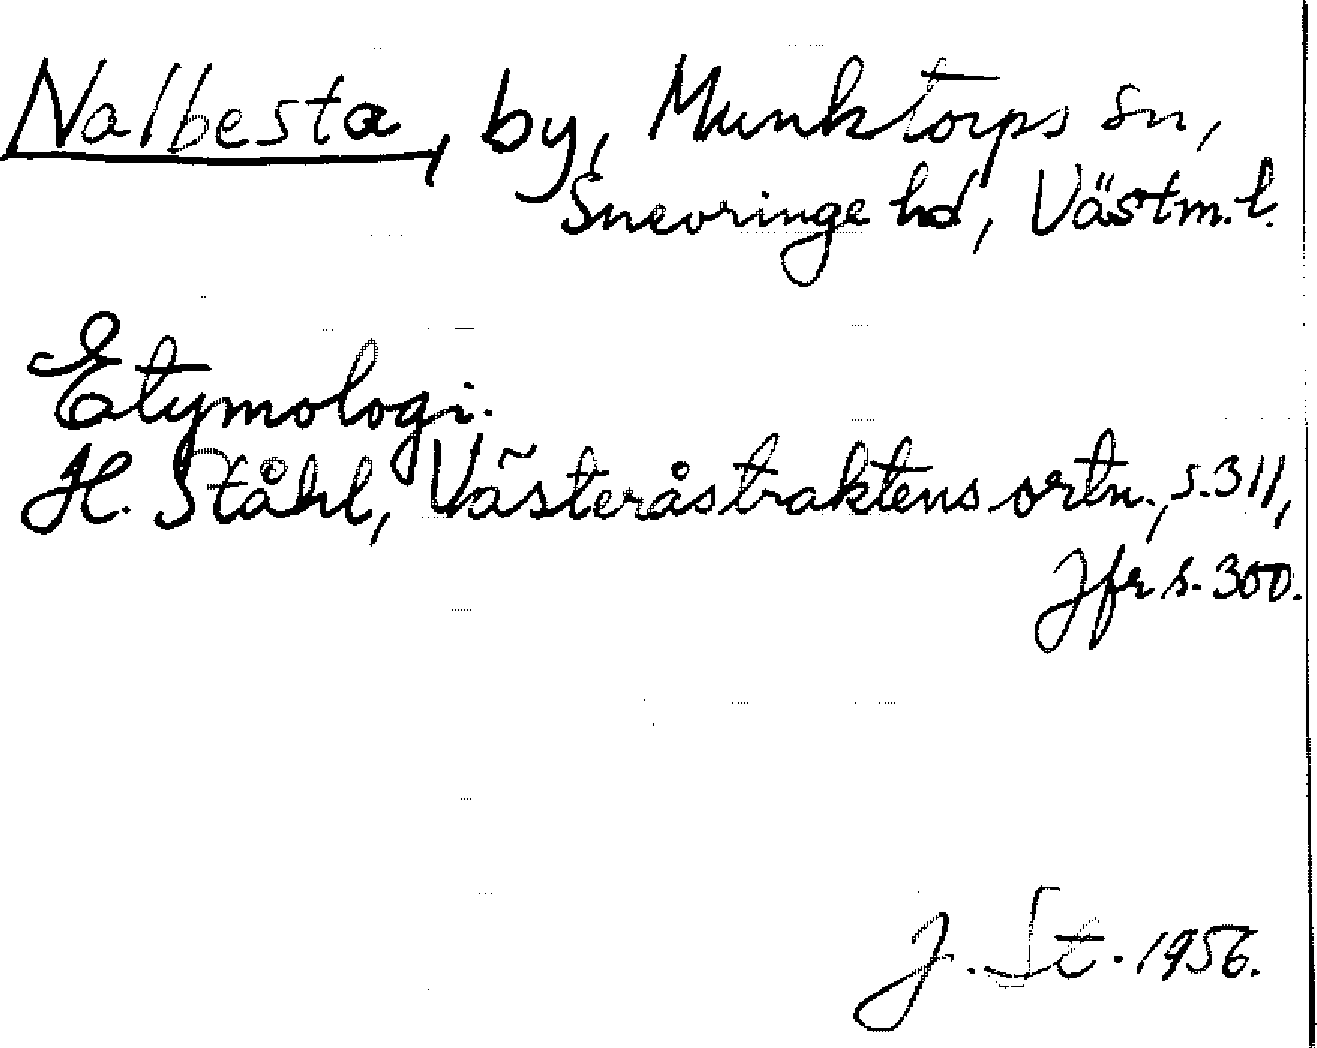 Nalbesta, by, Munktorps sn,
Snevringe hd, Västm. l.
Etymologi.
H. Ståhl, Västeråstraktens ortn., s. 311,
Jfr s. 300.
J. St. 1956.